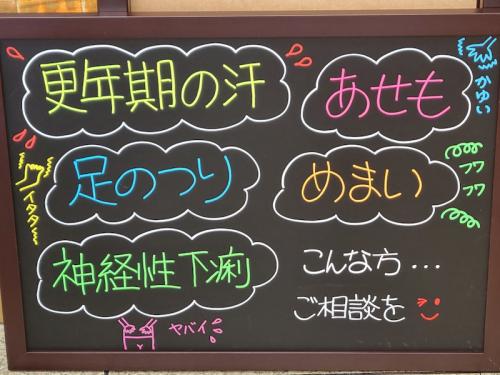 更年期の汗
あせも
かゆい
足のつり
イタタ!
めまい
フワフワ
神経性下痢
ヤバイ
こんな方...
ご相談を